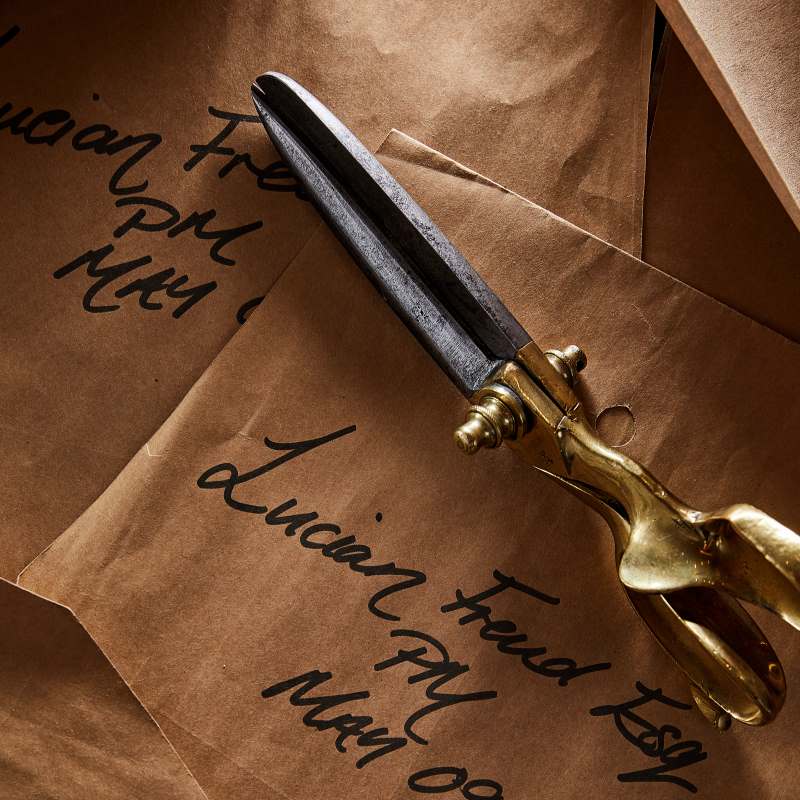 Lucian Freud
PM
MAY
Lucian Freud Esq
PM
MAY 09